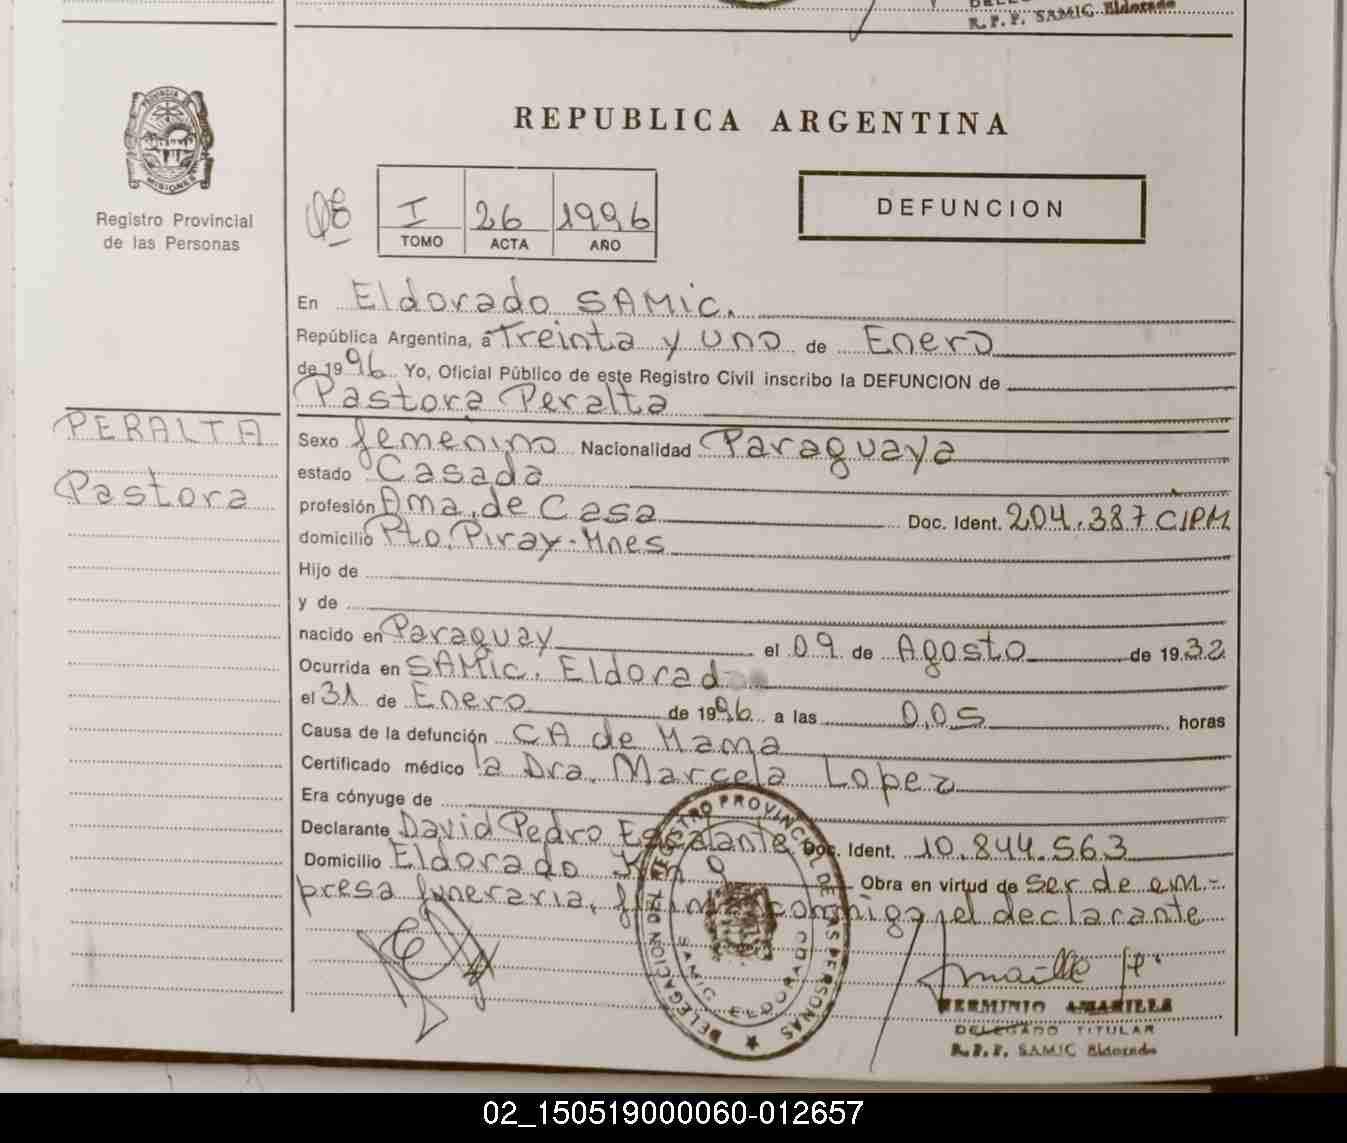 R.P.P. SAMIC Eldorado
PROVINCIA DE
MISIONES
Registro Provincial
de las Personas
REPUBLICA ARGENTINA
I 26 1996
TOMO ACTA AÑO
DEFUNCION
En Eldorado SAMIC.
República Argentina, a Treinta y uno de Enero
de 1996 Yo, Oficial Público de este Registro Civil inscribo la DEFUNCION de
Pastora Peralta
PERALTA
Pastora
Sexo femenino Nacionalidad Paraguaya
estado Casada
profesión Ama de Casa Doc. Ident. 204.387 CIPM
domicilio Pto. Piray-Mnes
Hijo de
y de
nacido en Paraguay el 09 de Agosto de 1932
Ocurrida en SAMIC. Eldorado
el 31 de Enero de 1996 a las 0,05 horas
Causa de la defunción CA de Mama
Certificado médico la Dra. Marcela Lopez
Era cónyuge de
Declarante David Pedro Escalante Doc. Ident. 10.844.563
Domicilio Eldorado Km 9 Obra en virtud de Ser de em-
presa funeraria, firma conmigo el declarante
REGISTRO PROVINCIAL DE LAS PERSONAS
DELEGACION
SAMIC ELDORADO
HERMINIO AMARILLA
DELEGADO TITULAR
R.P.P. SAMIC Eldorado
02_150519000060-012657